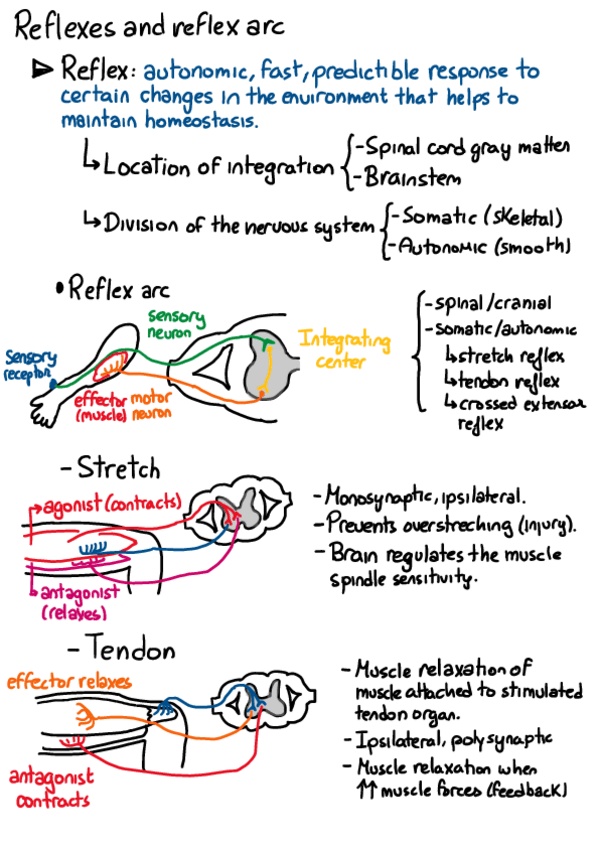 Reflexes and reflex arc
➤ Reflex: autonomic, fast, predictible response to
certain changes in the environment that helps to
maintain homeostasis.
↳ Location of integration
- Spinal cord gray matter
- Brainstem
↳ Division of the nervous system
- Somatic (skeletal)
- Autonomic (smooth)
• Reflex arc
sensory
neuron
Integrating
center
sensory
receptor
effector
(muscle)
motor
neuron
- spinal/cranial
- somatic/autonomic
↳ stretch reflex
↳ tendon reflex
↳ crossed extensor
reflex
- Stretch
agonist (contracts)
antagonist
(relaxes)
- Monosynaptic, ipsilateral.
- Prevents overstreching (injury).
- Brain regulates the muscle
spindle sensitivity.
- Tendon
effector relaxes
antagonist
contracts
- Muscle relaxation of
muscle attached to stimulated
tendon organ.
- Ipsilateral, polysynaptic
- Muscle relaxation when
↑↑ muscle forces (feedback)